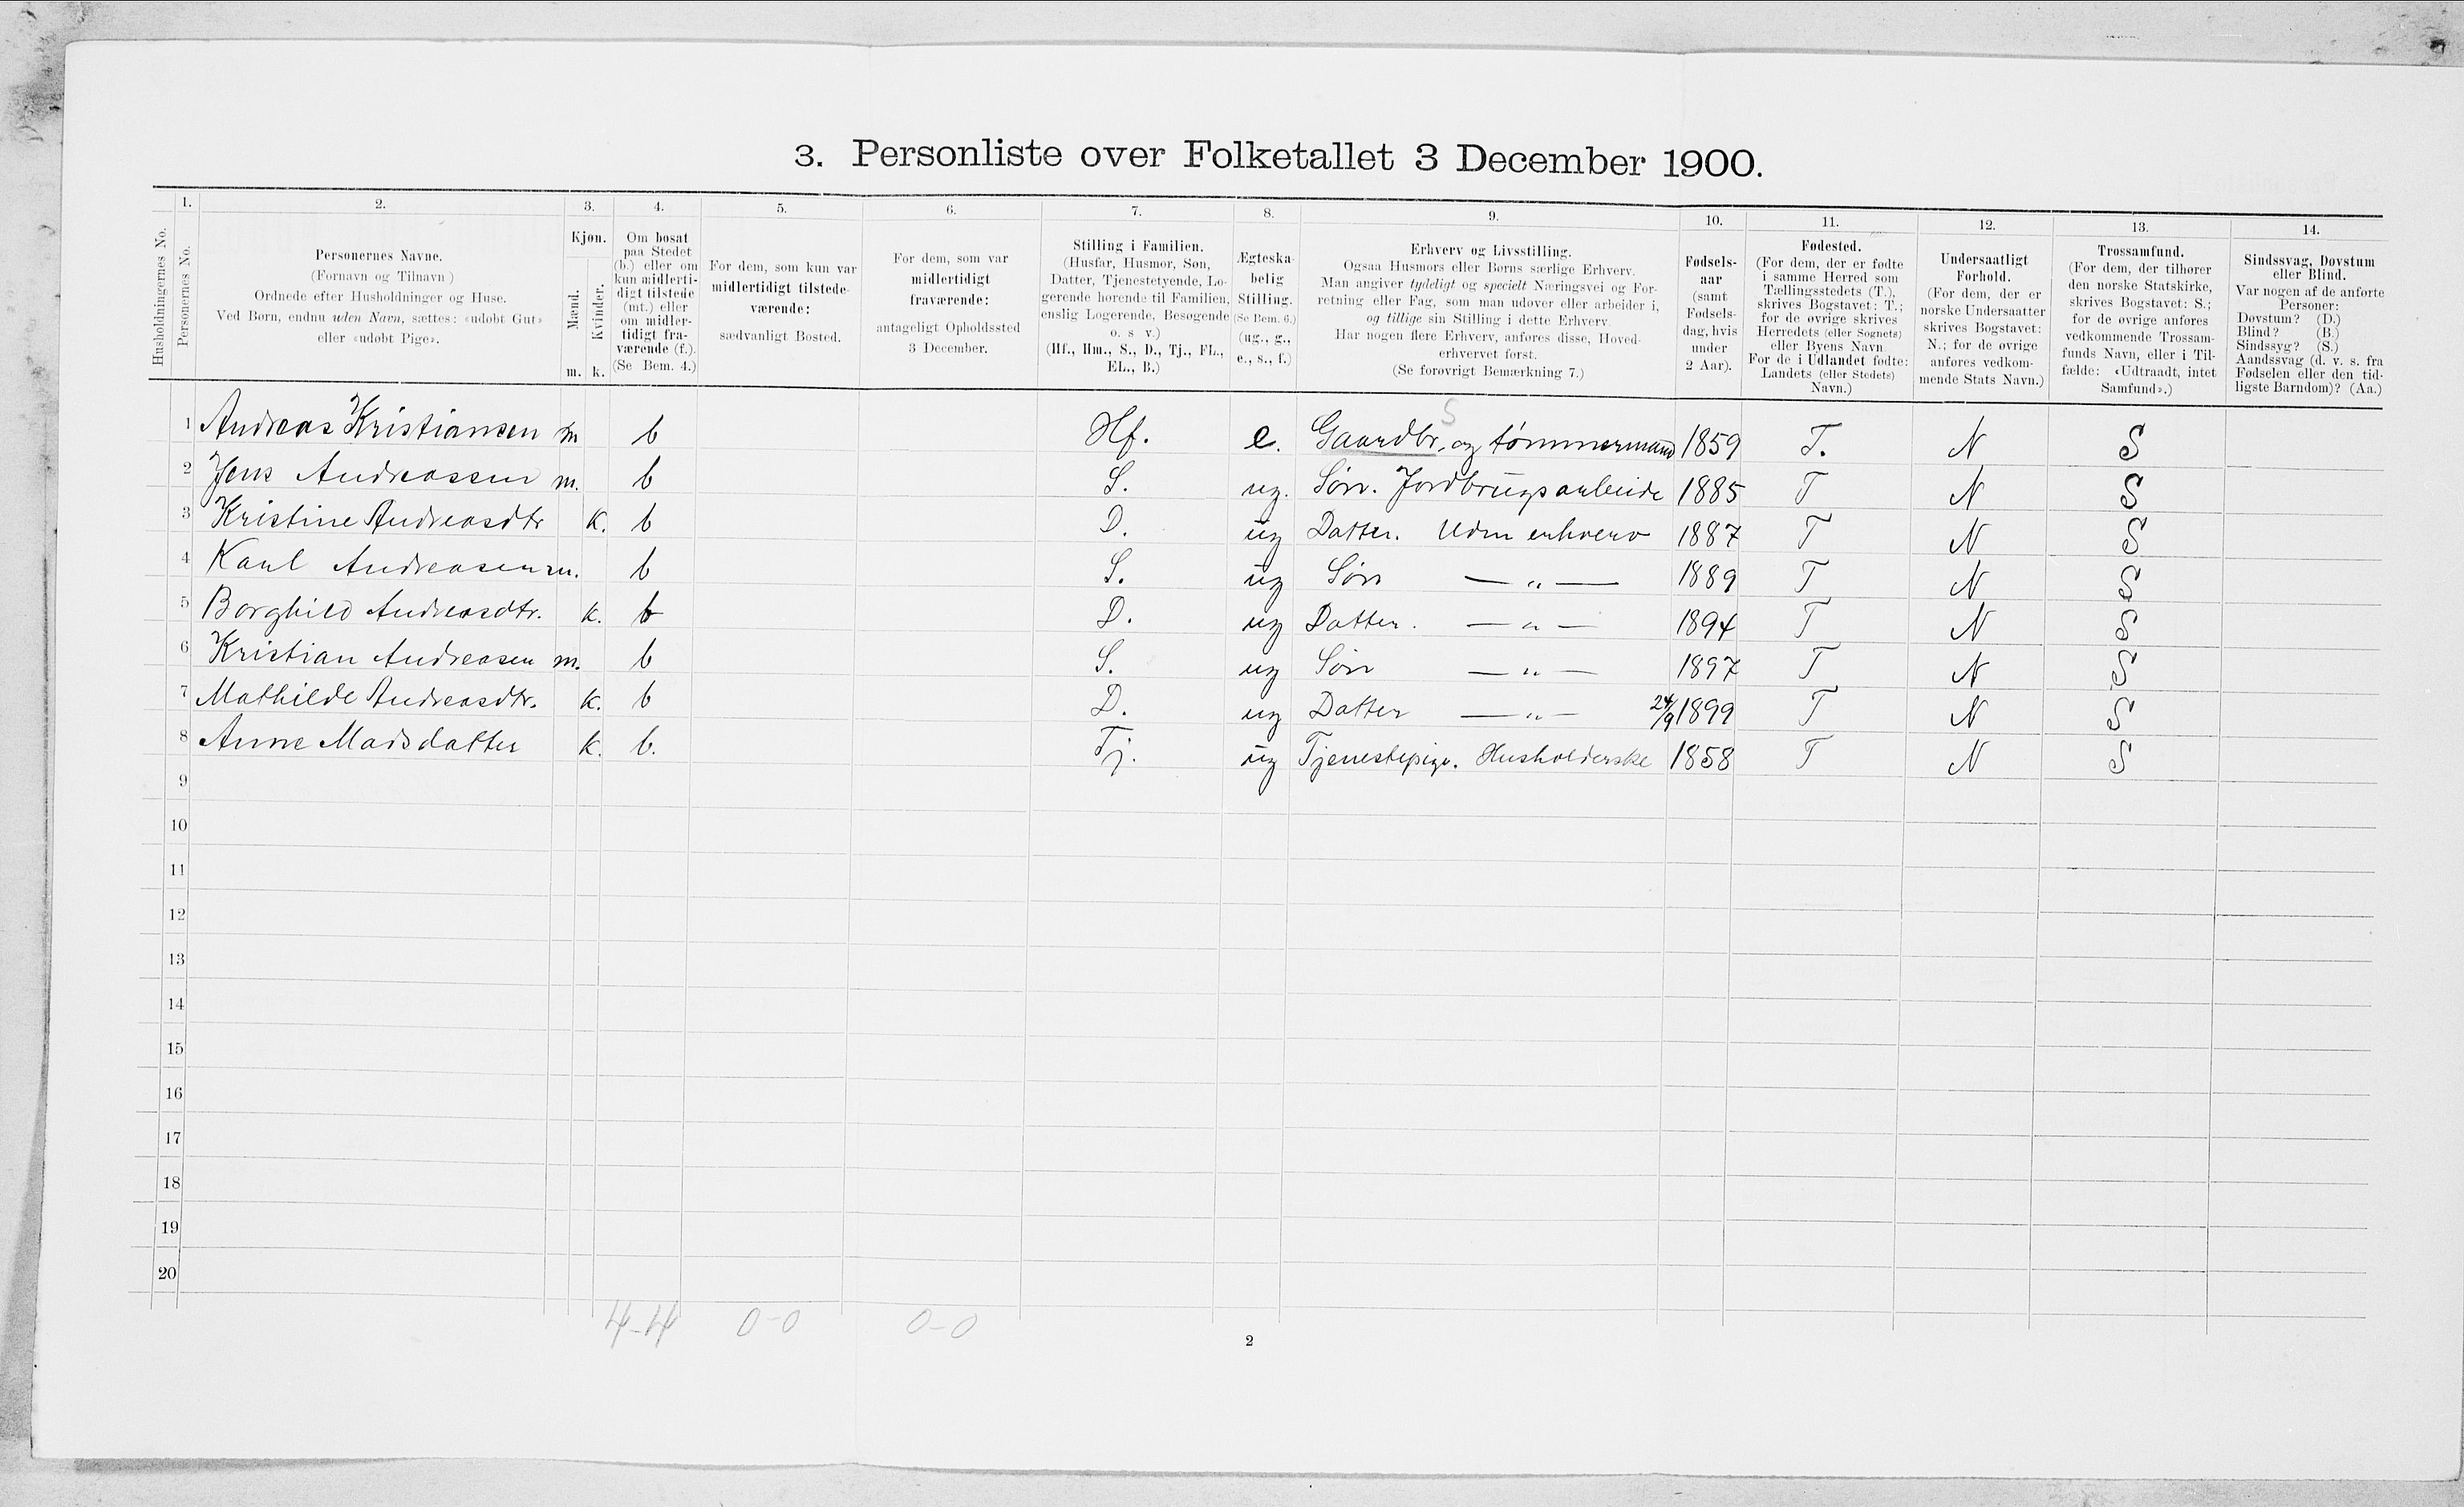 3. Personliste over Folketallet 3 December 1900.
1. 2. 3. 4. 5. 6. 7. 8. 9. 10. 11. 12. 13. 14.
Husholdningernes No.
Personernes No.
Personernes Navne.
(Fornavn og Tilnavn)
Ordnede efter Husholdninger og Huse.
Ved Børn, endnu uden Navn, sættes: «udøbt Gut»
eller «udøbt Pige».
Kjøn.
Mænd.
Kvinder.
m. k.
Om bosat
paa Stedet
(b.) eller om
kun midlerti-
digt tilstede
(mt.) eller
om midler-
tidigt fra-
værende (f.).
(Se Bem. 4.)
For dem, som kun var
midlertidigt tilstede-
værende:
sædvanligt Bosted.
For dem, som var
midlertidigt
fraværende:
antageligt Opholdssted
3 December.
Stilling i Familien.
(Husfar, Husmor, Søn,
Datter, Tjenestetyende, Lo-
gerende hørende til Familien,
enslig Logerende, Besøgende
o. s v.)
(Hf., Hm., S., D., Tj., FL.,
EL., B.)
Ægteska-
belig
Stilling.
(Se Bem. 6.)
(ug., g.,
e., s., f.)
Erhverv og Livsstilling.
Ogsaa Husmors eller Børns særlige Erhverv.
Man angiver tydeligt og specielt Næringsvei og For-
retning eller Fag, som man udøver eller arbeider i,
og tillige sin Stilling i dette Erhverv.
Har nogen flere Erhverv, anføres disse, Hoved-
erhvervet først.
(Se forøvrigt Bemærkning 7.)
Fødsels-
aar
(samt
Fødsels-
dag, hvis
under
2 Aar).
Fødested.
(For dem, der er fødte
i samme Herred som
Tællingsstedets (T.),
skrives Bogstavet: T.;
for de øvrige skrives
Herredets (eller Sognets)
eller Byens Navn
For de i Udlandet fødte:
Landets (eller Stedets)
Navn.)
Undersaatligt
Forhold.
(For dem, der er
norske Undersaatter
skrives Bogstavet:
N.; for de øvrige
anføres vedkom-
mende Stats Navn.)
Trossamfund.
(For dem, der tilhører
den norske Statskirke,
skrives Bogstavet: S.;
for de øvrige anføres
vedkommende Trossam-
funds Navn, eller i Til-
fælde: «Udtraadt, intet
Samfund».)
Sindssvag, Døvstum
eller Blind.
Var nogen af de anførte
Personer:
Døvstum? (D.)
Blind? (B.)
Sindssyg? (S.)
Aandssvag (d. v. s. fra
Fødselen eller den tid-
ligste Barndom)? (Aa.)
5
1 Andreas Kristiansen m b Hf. e. Gaardbr. og tømmermand 1859 T. N S
2 Jens Andreassen m. b S. ug. Søn. Jordbrugsarbeide 1885 T N S
3 Kristine Andreasdtr k. b D. ug Datter. Uden erhverv 1887 T N S
4 Karl Andreasen m. b S. ug Søn — „ — 1889 T N S
5 Borghild Andreasdtr. k. b D. ug Datter. — „ — 1894 T N S
6 Kristian Andreasen m. b S. ug Søn — „ — 1897 T N S
7 Mathilde Andreasdtr. k. b D. ug Datter — „ — 24/9 1899 T N S
8 Anne Madsdatter k. b. Tj. ug Tjenestepige. Husholderske 1858 T N S
9
10
11
12
13
14
15
16
17
18
19
20
4-4 0-0 0-0
2